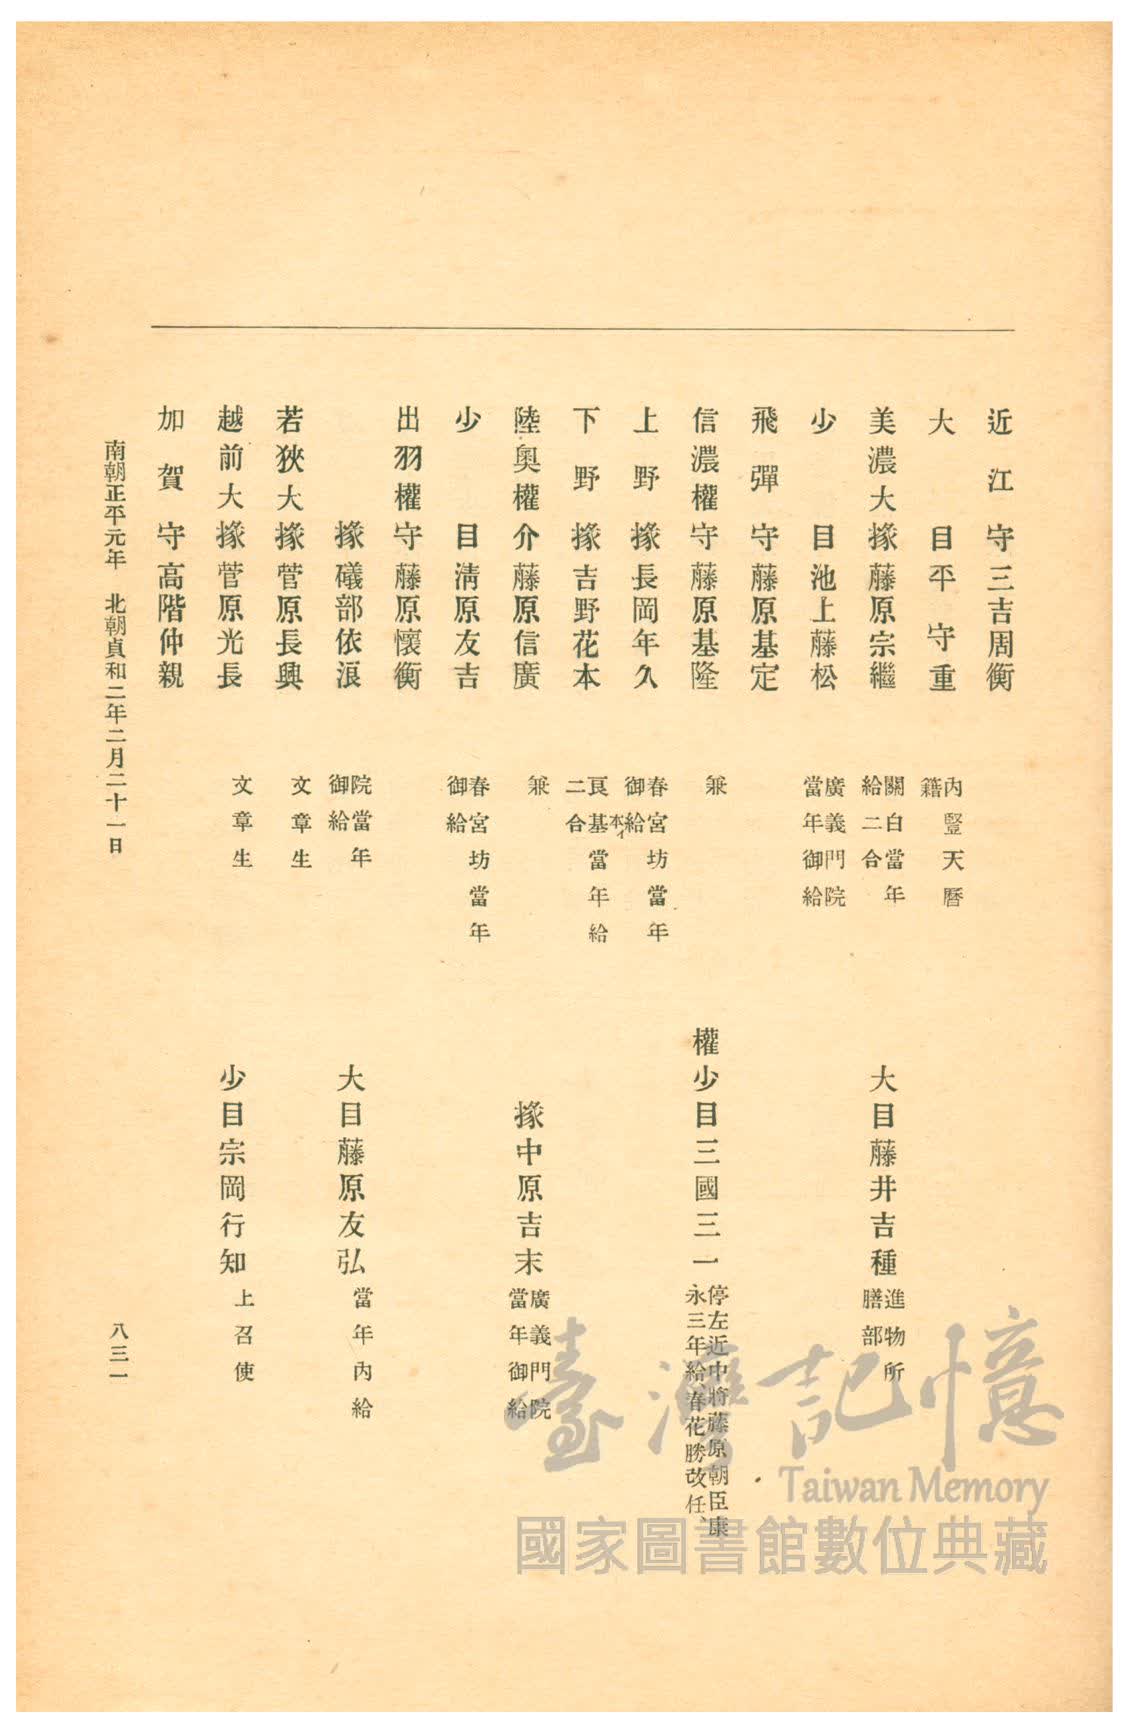 近江守三吉周衡
大目平守重 內豎天曆籍
美濃大掾藤原宗繼 關白當年給二合 大目藤井吉種 進物所膳部
少目池上藤松 廣義門院當年御給
飛彈守藤原基定
信濃權守藤原基隆 兼 權少目三國三一 停左近中將藤原朝臣康永三年給、春花勝改任、
上野掾長岡年久 春宮坊當年御給
下野掾吉野花本 本イ 良基當年給二合
陸奧權介藤原信廣 兼 掾中原吉末 廣義門院當年御給
少目淸原友吉 春宮坊當年御給
出羽權守藤原懷衡
掾礒部依浪 院當年御給 大目藤原友弘 當年內給
若狹大掾菅原長興 文章生
越前大掾菅原光長 文章生 少目宗岡行知 上召使
加賀守高階仲親
南朝正平元年 北朝貞和二年二月二十一日 八三一
臺灣記憶
Taiwan Memory
國家圖書館數位典藏